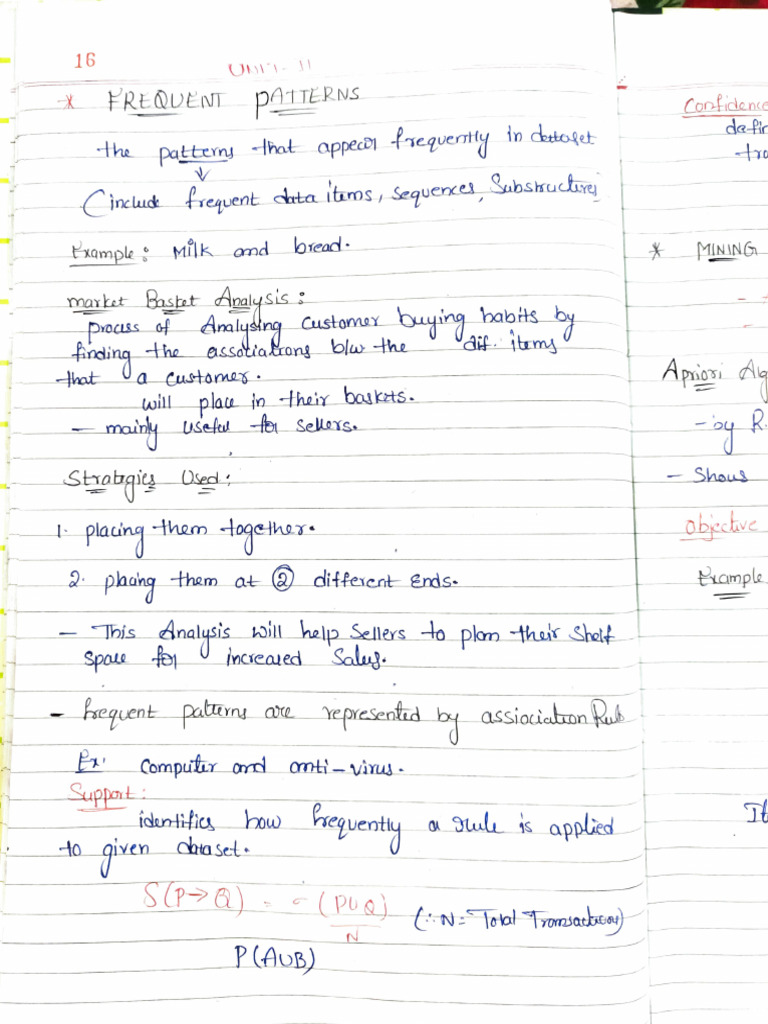 16
UNIT-II
* FREQUENT PATTERNS
the patterns that appear frequently in dataset
(include frequent data items, sequences, Substructures
Example: Milk and bread.
market Basket Analysis:
process of Analysing customer buying habits by
finding the associations b/w the dif. items
that a customer.
will place in their baskets.
- mainly useful for sellers.
Strategies Used:
1. placing them together.
2. placing them at ② different Ends.
- This Analysis will help Sellers to plan their Shelf
space for increased Sales.
- frequent patterns are represented by assiociation Rule
Ex: computer and anti-virus.
Support:
identifies how frequently a rule is applied
to given dataset.
S(P→Q) = σ(P∪Q)
N
(∵N= Total Transactions)
P(A∪B)
Confidence
defin
tra
* MINING
Apriori Alg
- by R.
- Shows
Objective
Example
It